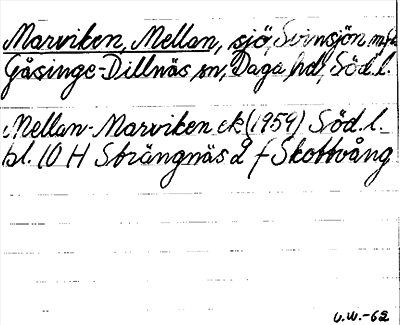 Marviken, Mellan, sjö, Svinsjön
Gåsinge-Dillnäs sn, Daga hd, Söd. l.
Mellan-Marviken ek (1959) Söd. l.
bl. 10 H Strängnäs 2 f Skottvång
U.W.-62